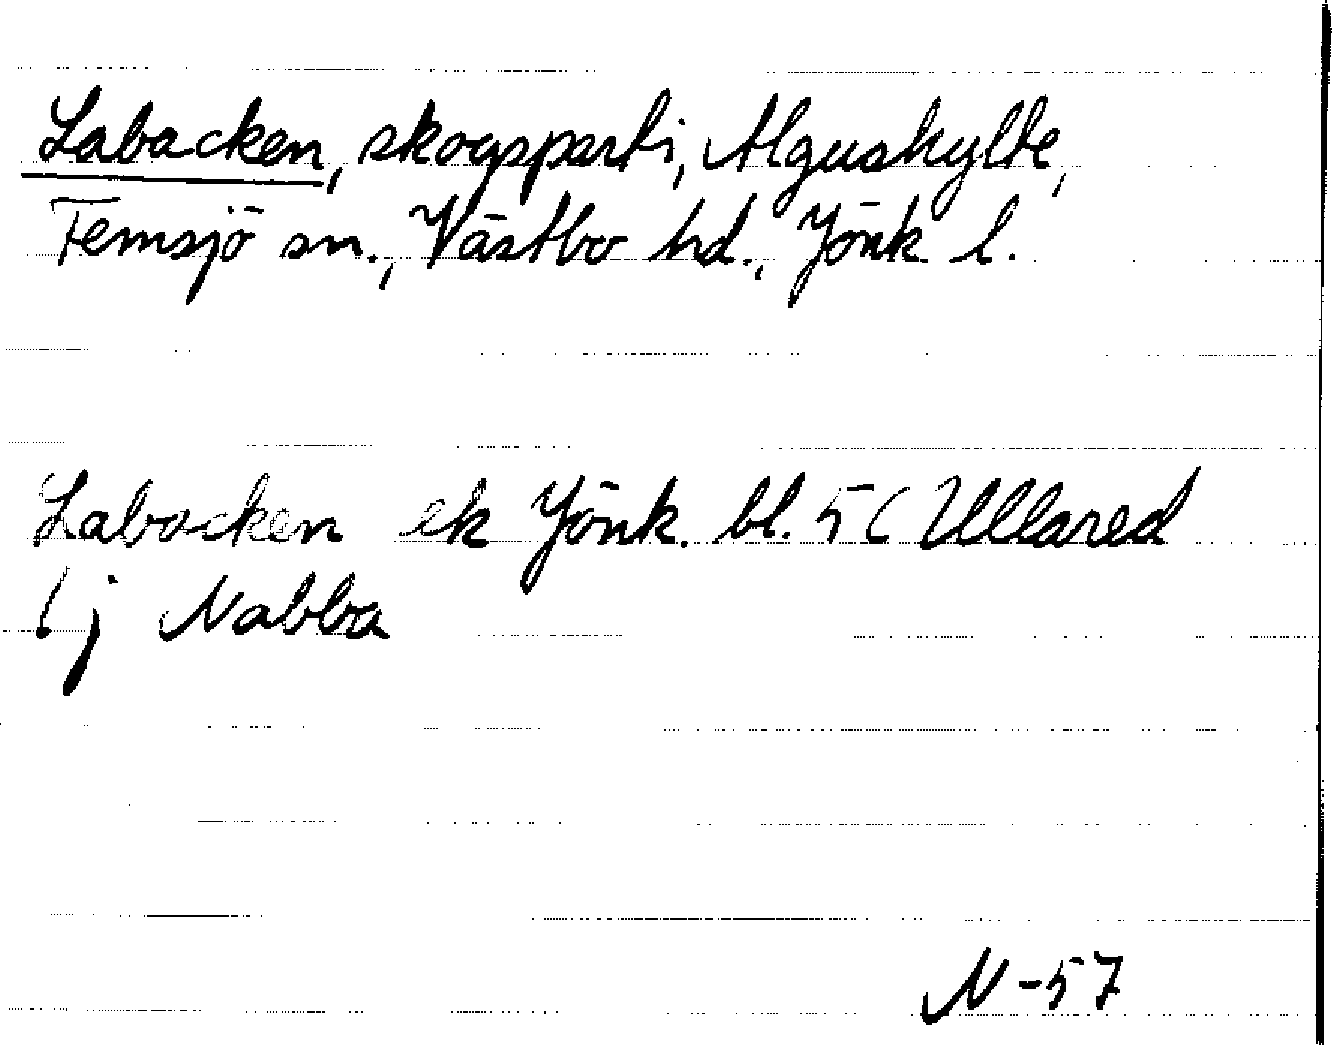 Labacken, skogsparti, Algushylte,
Femsjö sn., Västbo hd., Jönk l.
Labacken ek Jönk. bl. 5 (Ullared
(j Nabba
N-57